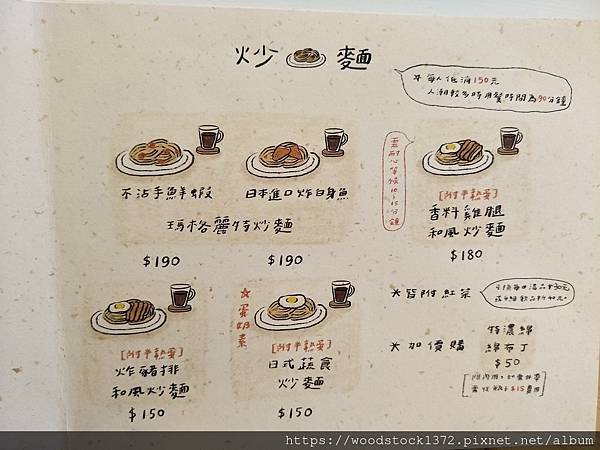 炒麵
*每人低消150元
人潮較多時用餐時間為90分鐘
不沾手鮮蝦
日本進口炸白身魚
瑪格麗特炒麵
$190
$190
需耐心等候10~15分鐘
[附半熟蛋]
香料雞腿
和風炒麵
$180
[附半熟蛋]
炸豬排
和風炒麵
$150
☆蛋奶素
[附半熟蛋]
日式蔬食
炒麵
$150
*皆附紅茶
*加價購
特濃綿
綿布丁
$50
https://woodstock1372.pixnet.net/album